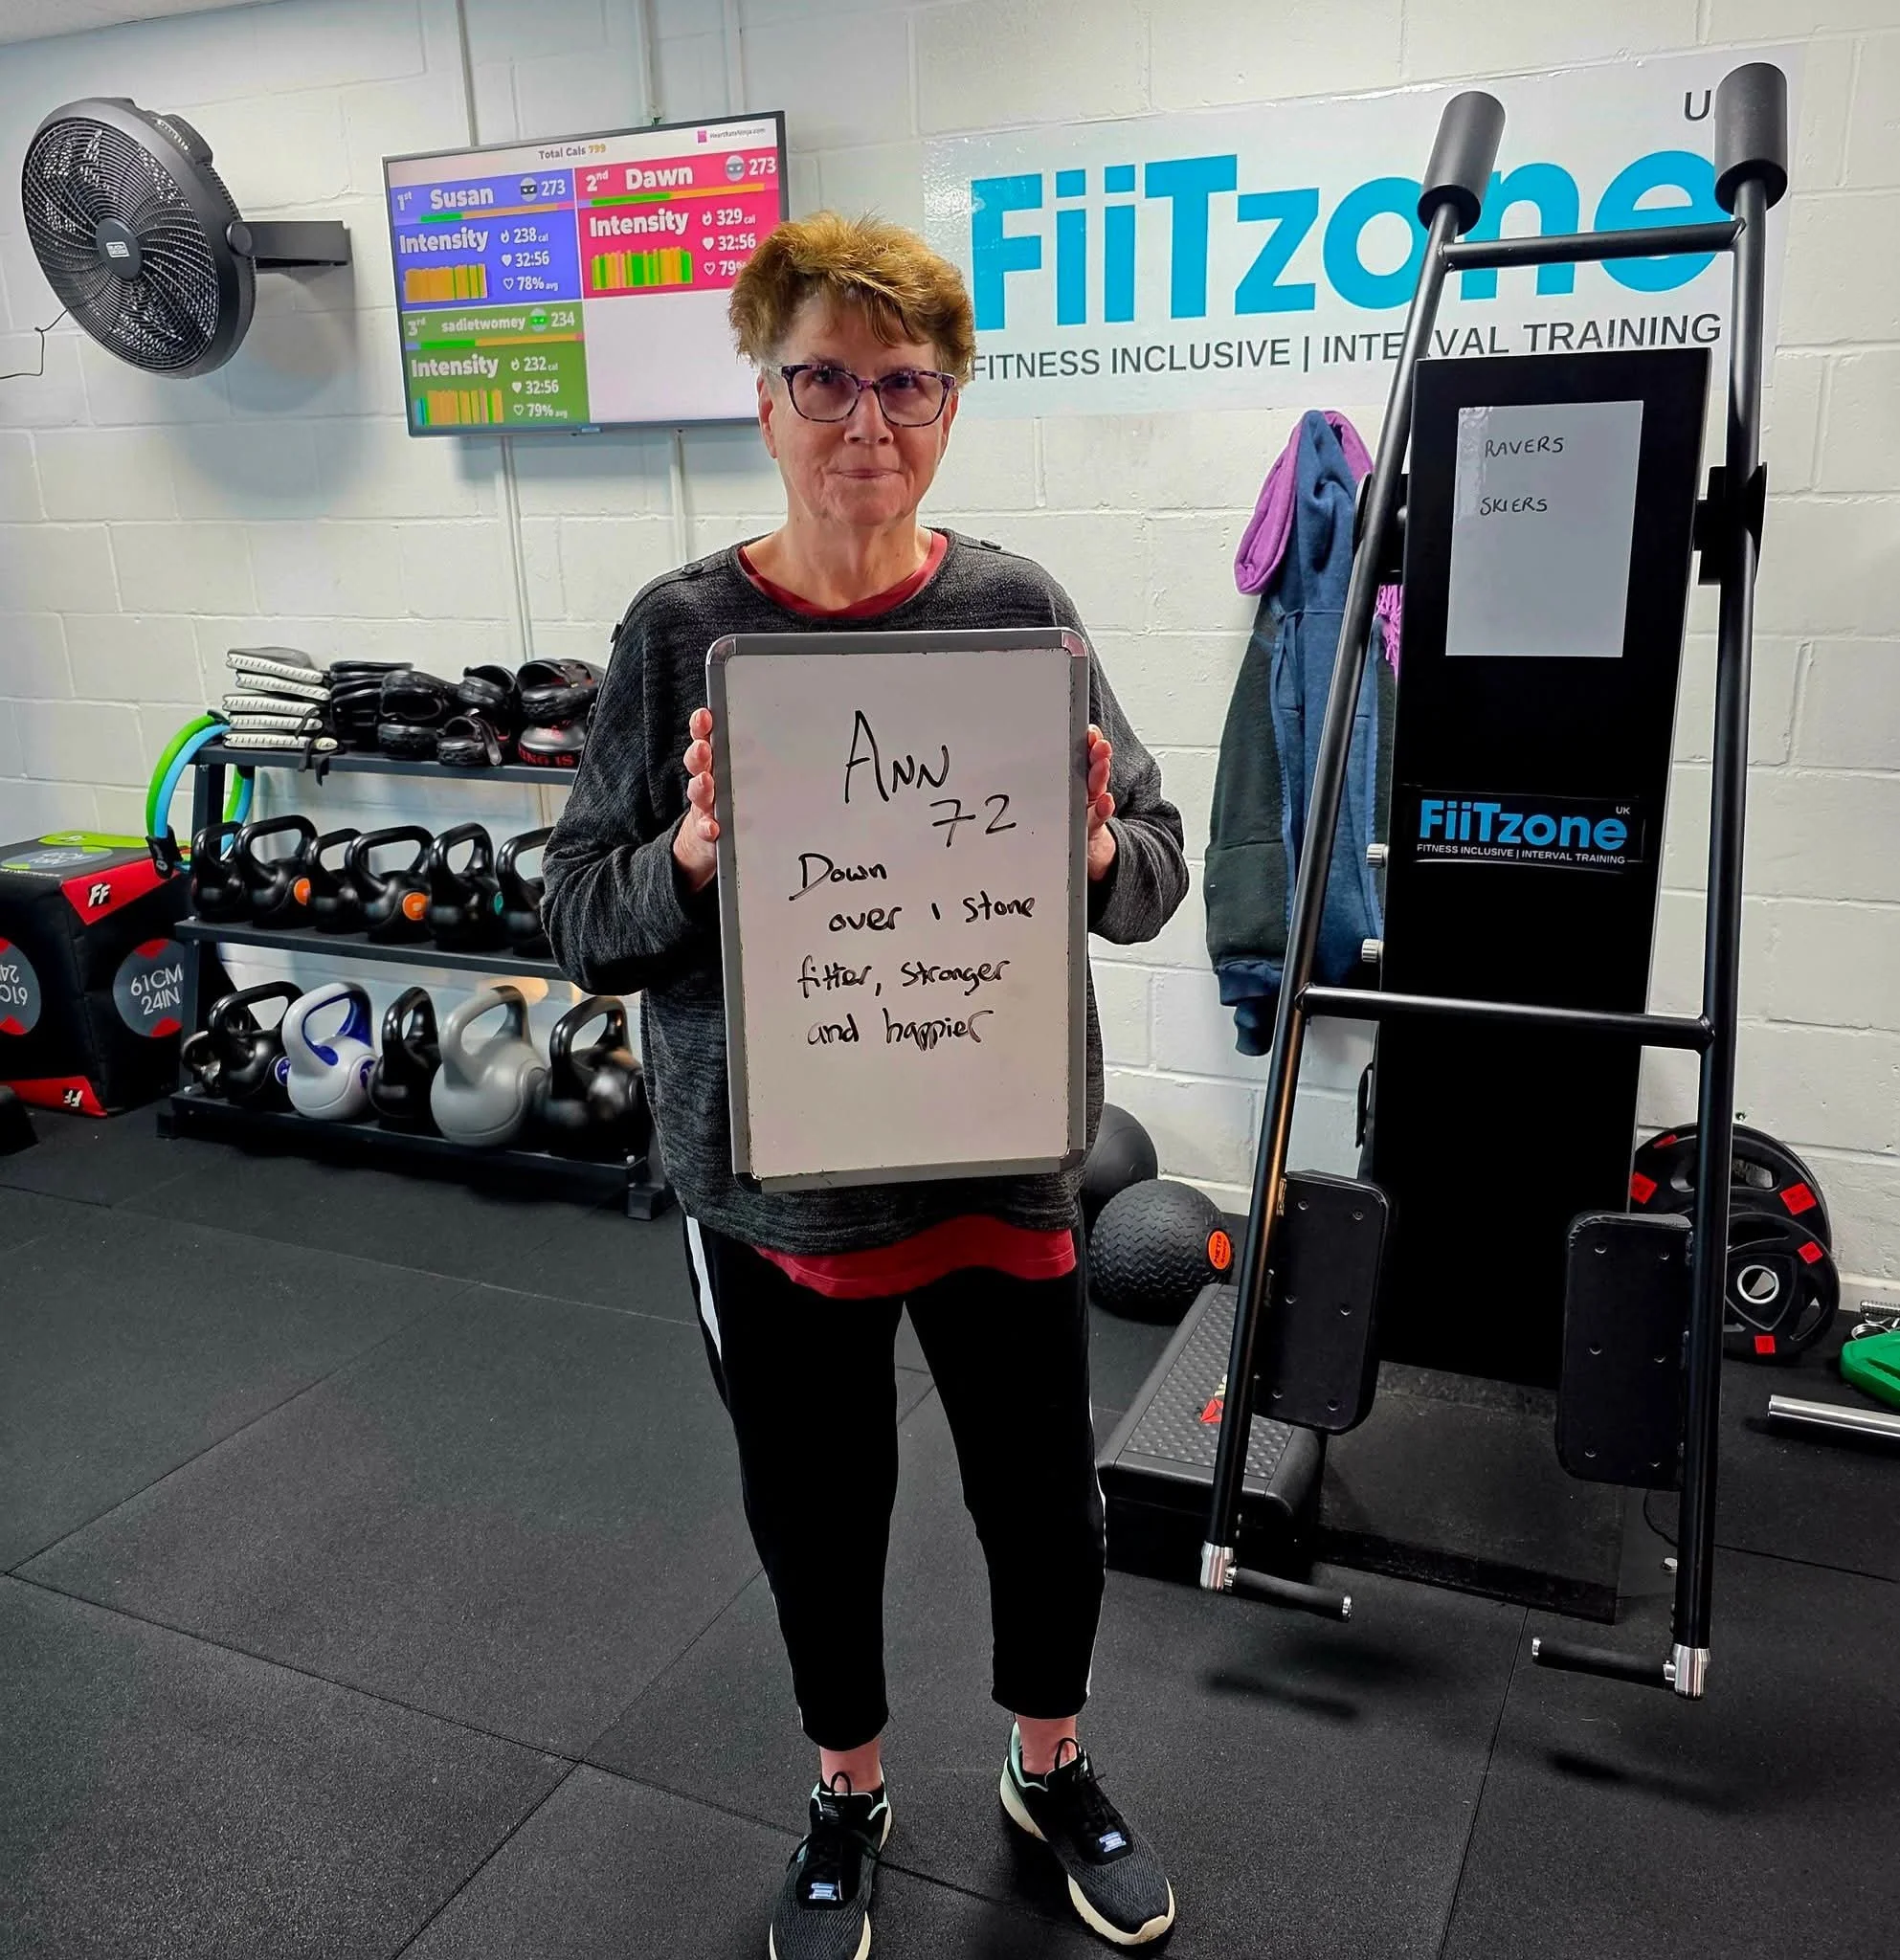 HeartRateNinja.com
Total Cals 799
1st Susan 273
2nd Dawn 273
Intensity 238 cal
32:56
78% avg
Intensity 329 cal
32:56
79%
3rd sadietwomey 234
Intensity 232 cal
32:56
79% avg
U
FiiTzone
FITNESS INCLUSIVE | INTERVAL TRAINING
RAVERS
SKIERS
Ann
72
Down
over 1 stone
fitter, stronger
and happier
UK
FiiTzone
FITNESS INCLUSIVE | INTERVAL TRAINING
FF
61CM
24IN
61CM
24IN
FF
NG IS